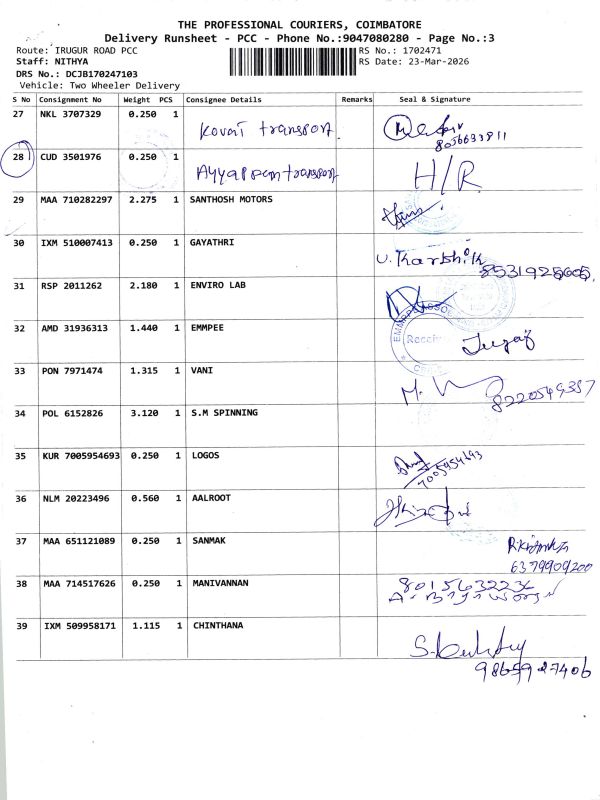 THE PROFESSIONAL COURIERS, COIMBATORE
Delivery Runsheet - PCC - Phone No.:9047080280 - Page No.:3
Route: IRUGUR ROAD PCC RS No.: 1702471
Staff: NITHYA RS Date: 23-Mar-2026
DRS No.: DCJB170247103
Vehicle: Two Wheeler Delivery
S No Consignment No Weight PCS Consignee Details Remarks Seal & Signature
27 NKL 3707329 0.250 1 Kovai transport
8056633811
28 CUD 3501976 0.250 1 Ayyappan transport H/R
29 MAA 710282297 2.275 1 SANTHOSH MOTORS
30 IXM 510007413 0.250 1 GAYATHRI U. Karthik
8531928605
31 RSP 2011262 2.180 1 ENVIRO LAB
32 AMD 31936313 1.440 1 EMMPEE
33 PON 7971474 1.315 1 VANI
8220549357
34 POL 6152826 3.120 1 S.M SPINNING
35 KUR 7005954693 0.250 1 LOGOS
7005954693
36 NLM 20223496 0.560 1 AALROOT
37 MAA 651121089 0.250 1 SANMAK
6379909200
38 MAA 714517626 0.250 1 MANIVANNAN 8015632236
39 IXM 509958171 1.115 1 CHINTHANA
9865927406